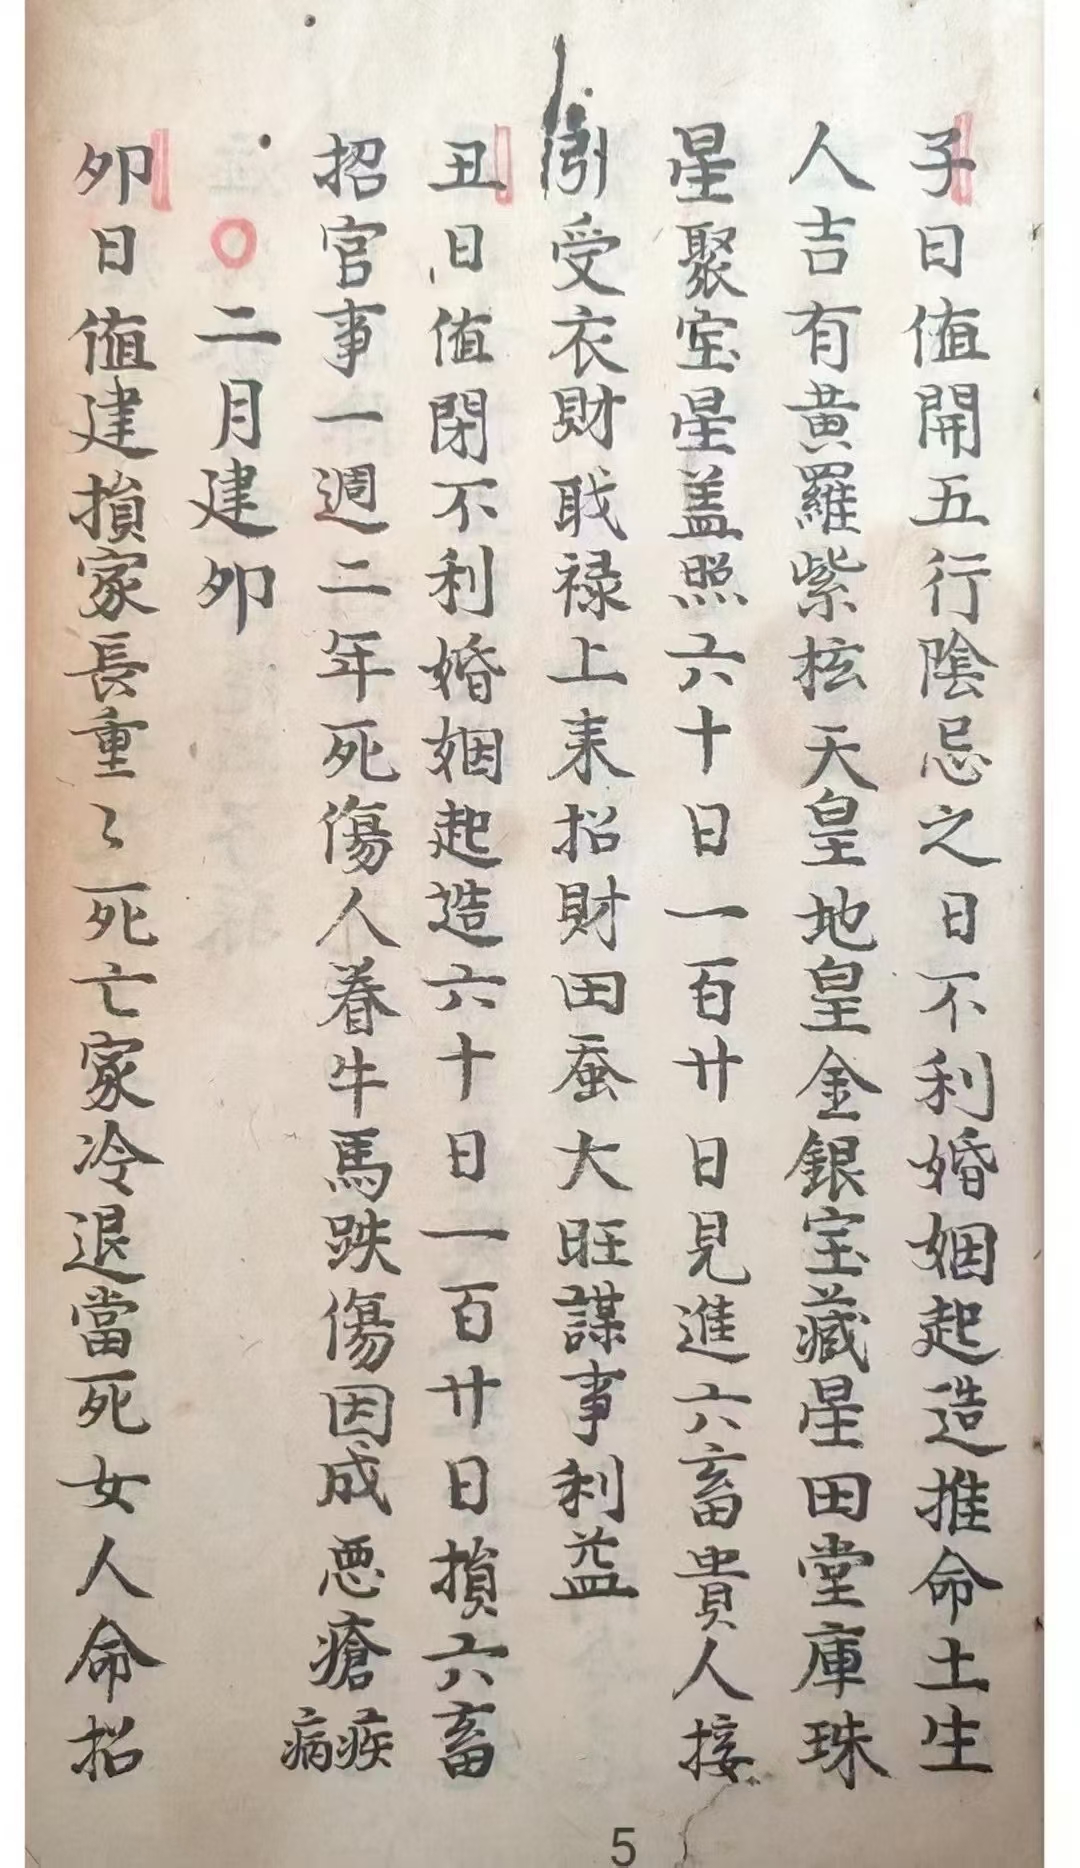 子日值開五行陰忌之日不利婚姻起造推命土生
人吉有黃羅紫桩天皇地皇金銀宝藏星田堂庫珠
星聚宝星盖照六十日一百廿日見進六畜貴人接
引受衣財耺禄上来招財田蚕大旺謀事利益
丑日值閉不利婚姻起造六十日一百廿日損六畜
招官事一週二年死傷人眷牛馬跌傷因成悪瘡疾病
〇二月建卯
卯日值建損家長重〻死亡家冷退當死女人命招
5